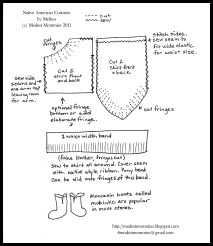 Native American Costume
by Melissa
(c) Modest Mommies 2011
cut
sew
cut fringes
Cut 2
shirt front
and back
Cut 2
skirt front
+ back
Stitch sides.
sew seam to
fit wide elastic
for waist size.
sew side
seams and
one arm not
leaving room
for arm.
cut fringes
optional fringe
bottom or add
elaborate fringe.
2 waist width band
(fake leather, fringes cut)
Sew to shirt all around. Cover seam
with native style ribbon. Pony bead
can be slid into fringes of this band.
Moccasin boots called
mukluks are popular
in most stores.
http://modestmommies.blogspot.com